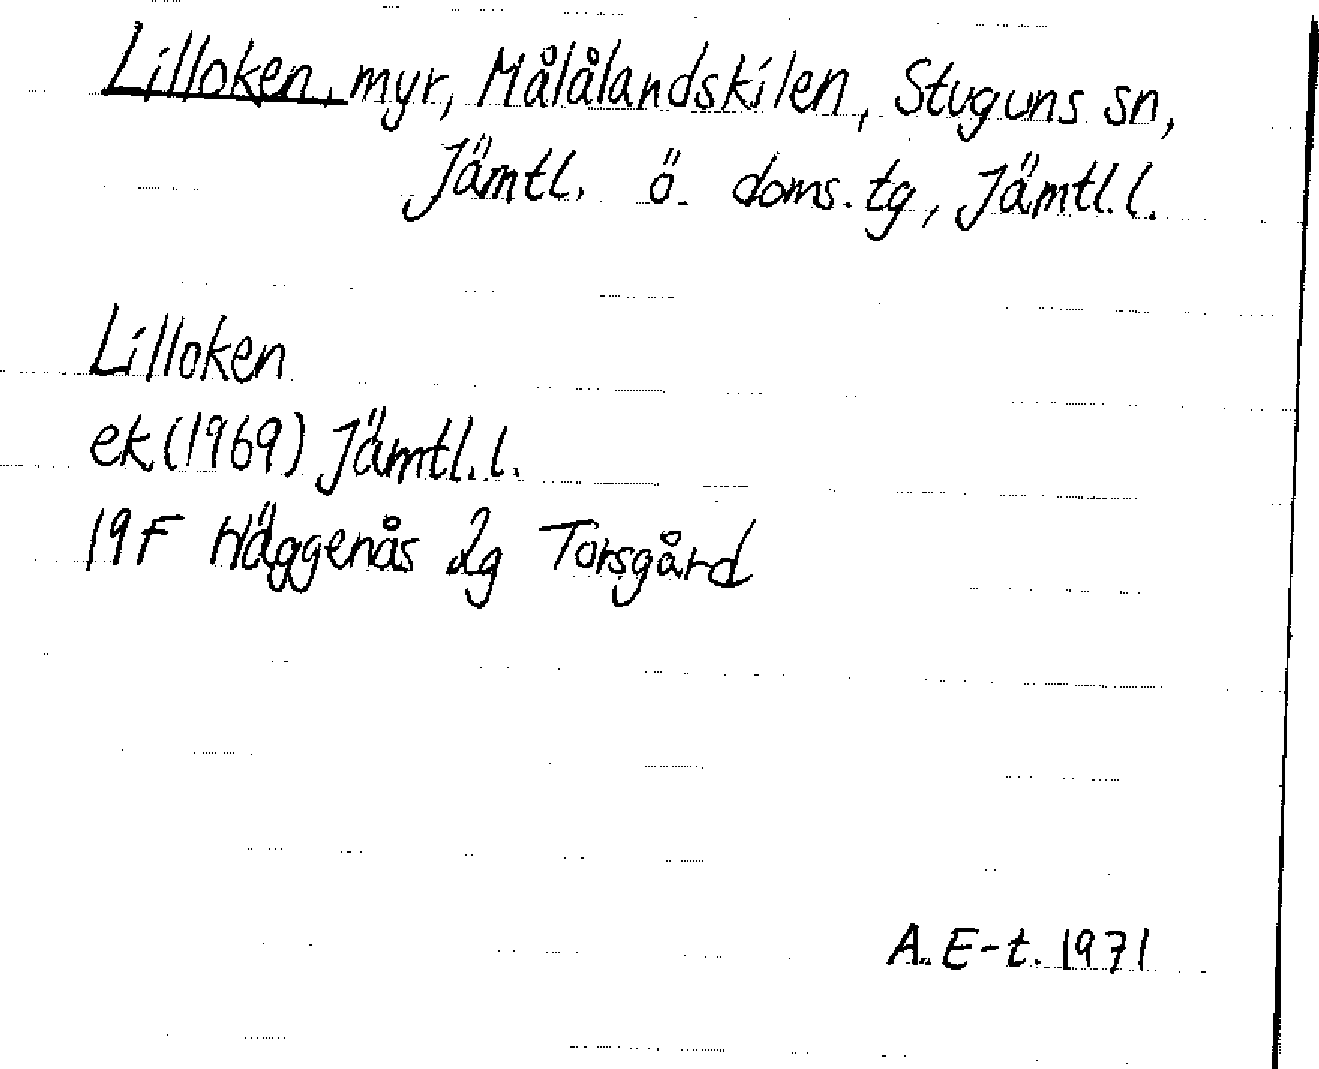 Lilloken, myr, Målålandskilen, Stuguns sn,
Jämtl. ö. doms.tg, Jämtl.l.
Lilloken
ek (1969) Jämtl.l.
19F Häggenås 2g Torsgård
A. E-t. 1971